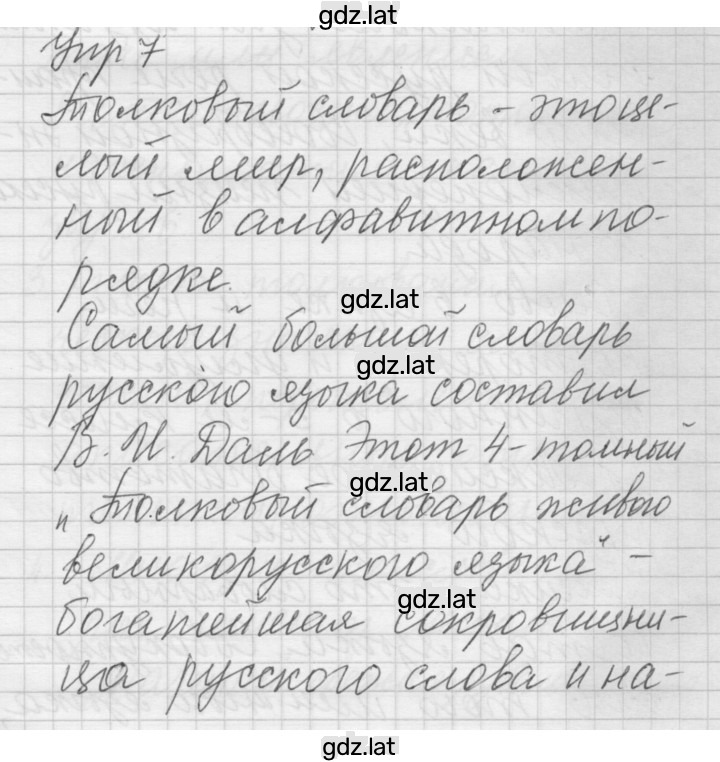 gdz.lat
Упр 7
Толковый словарь - это це-
лый мир, расположен-
ный в алфавитном по-
рядке.
gdz.lat
Самый большой словарь
gdz.lat
русского языка составил
В. И. Даль. Этот 4-томный
gdz.lat
„Толковый словарь живого
великорусского языка“ -
gdz.lat
богатейшая сокровищни-
ца русского слова и на-
gdz.lat